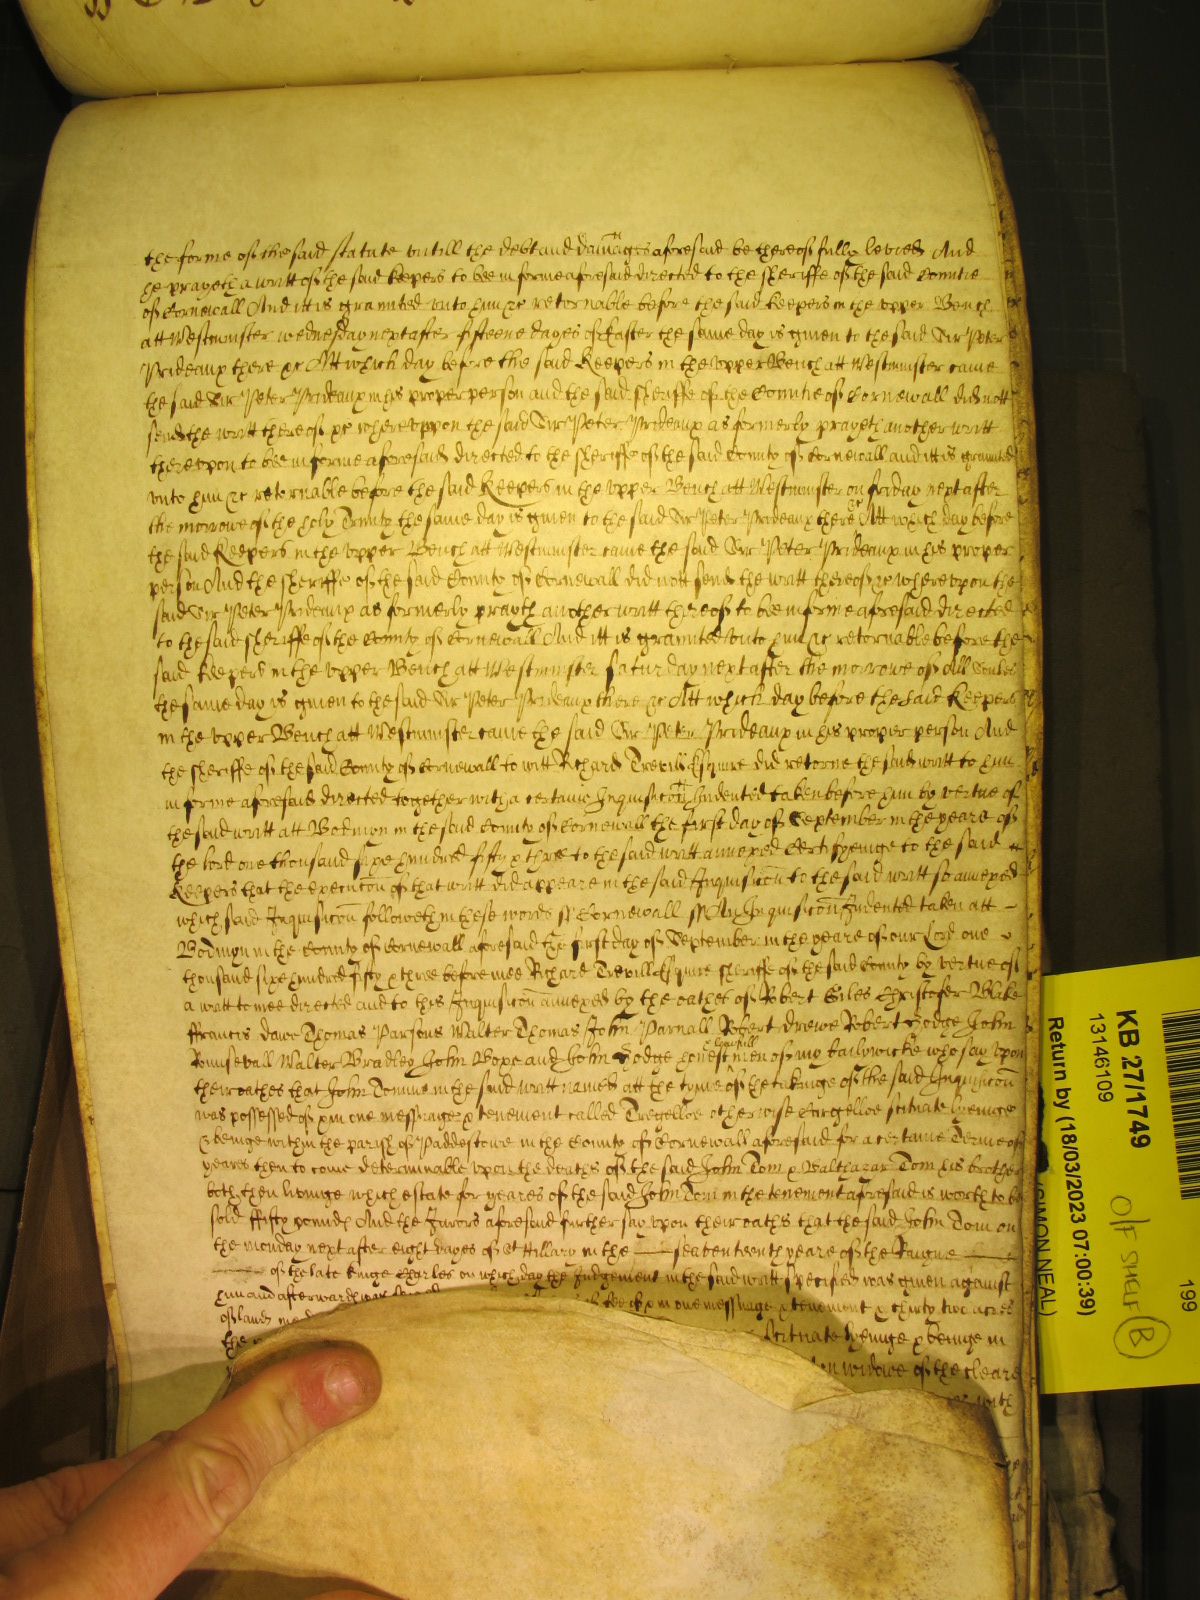 the forme of the said statute untill the debt and damages aforesaid be thereof fully levied And
he prayeth a writt of the said keepers to bee in forme aforesaid directed to the sheriffe of the said Countie
of Cornewall And itt is graunted unto him &c retornable before the said keepers in the upper Bench
att Westminster wednesday next after fifteene dayes of Easter the same day is given to the said Sir Peter
Prideaux there &c Att which day before the said Keepers in the upper Bench att Westminster came
the said Sir Peter Prideaux in his proper person and the said sheriffe of the Countie of Cornewall did nott
send the writt thereof &c whereuppon the said Sir Peter Prideaux as formerly prayeth another writt
thereupon to bee in forme aforesaid directed to the sheriffe of the said County of Cornewall and itt is graunted
unto him &c retornable before the said Keepers in the upper Bench att Westminster on friday next after
the morrowe of the holy Trinity the same day is given to the said Sir Peter Prideaux there &c Att which day before
the said Keepers in the upper Bench att Westminster came the said Sir Peter Prideaux in his proper
person And the sheriffe of the said County of Cornewall did nott send the writt thereof &c whereupon the
said Sir Peter Prideaux as formerly prayth another writt thereof to bee in forme aforesaid directed
to the said sheriffe of the County of Cornewall And itt is graunted unto him &c retornable before the
said keepers in the upper Bench att Westminster saturday next after the morrowe of All Soules
the same day is given to the said Sir Peter Prideaux there &c Att which day before the said Keepers
in the upper Bench att Westminster came the said Sir Peter Prideaux in his proper person And
the sheriffe of the said County of Cornewall to witt Richard Trevill Esquire did retorne the said writt to him
in forme aforesaid directed together with a certaine Inquisicon Indented taken before him by vertue of
the said writt att Bodmyn in the said County of Cornewall the first day of September in the yeare of
the lord one thousand sixe hundred fifty & three to the said writt annexed Certifyeinge to the said
Keepers that the execucon of that writt did appeare in the said Inquisicon to the said writt so annexed
which said Inquisicon followeth in these words ss Cornewall ss An Inquisicon Indented taken att
Bodmyn in the County of Cornewall aforesaid the first day of September in the yeare of our Lord one
thousand sixe hundred fifty & three before mee Richard Trevill Esquire sheriffe of the said County by vertue of
a writt to mee directed and to this Inquisicon annexed by the oathes of Robert Giles Christofer Blake
ffrancis dawe Thomas Parsons Walter Thomas John Parnall Robert drewe Robert Hodge John
Rounsevall Walter Bradley John Pope and John Hodge honest & lawfull men of my bailywicke who say upon
their oathes that John Tomme in the said writt named att the tyme of the takinge of the said Inquisicon
was possessed of & in one messuage & tenement called Tregelloe otherwise scituate lyeinge
& beinge within the parish of Paddestowe in the County of Cornewall aforesaid for a certaine Terme of
yeares then to come determinable upon the deaths of the said John Tom & Balthazar Tom his brother
both then liveinge which estate for yeares of the said John Tom in the tenement aforesaid is worth to be
sold ffifty pounds And the Jurors aforesaid further say upon their oaths that the said John Tom on
the monday next after eight dayes of St Hillary in the seaventeenth yeare of the Raigne
of the late kinge Charles on which day the Judgement in the said writt specified was given against
him and afterwards was seized of & in one messuage & tenement & thirty two acres
of land
the scituate lyeinge & beinge in
widowe of the cleare
with
KB 27/1749
13146109
Return by (18/03/2023 07:00:39)
(SIMON NEAL)
199
O/F SHELF B